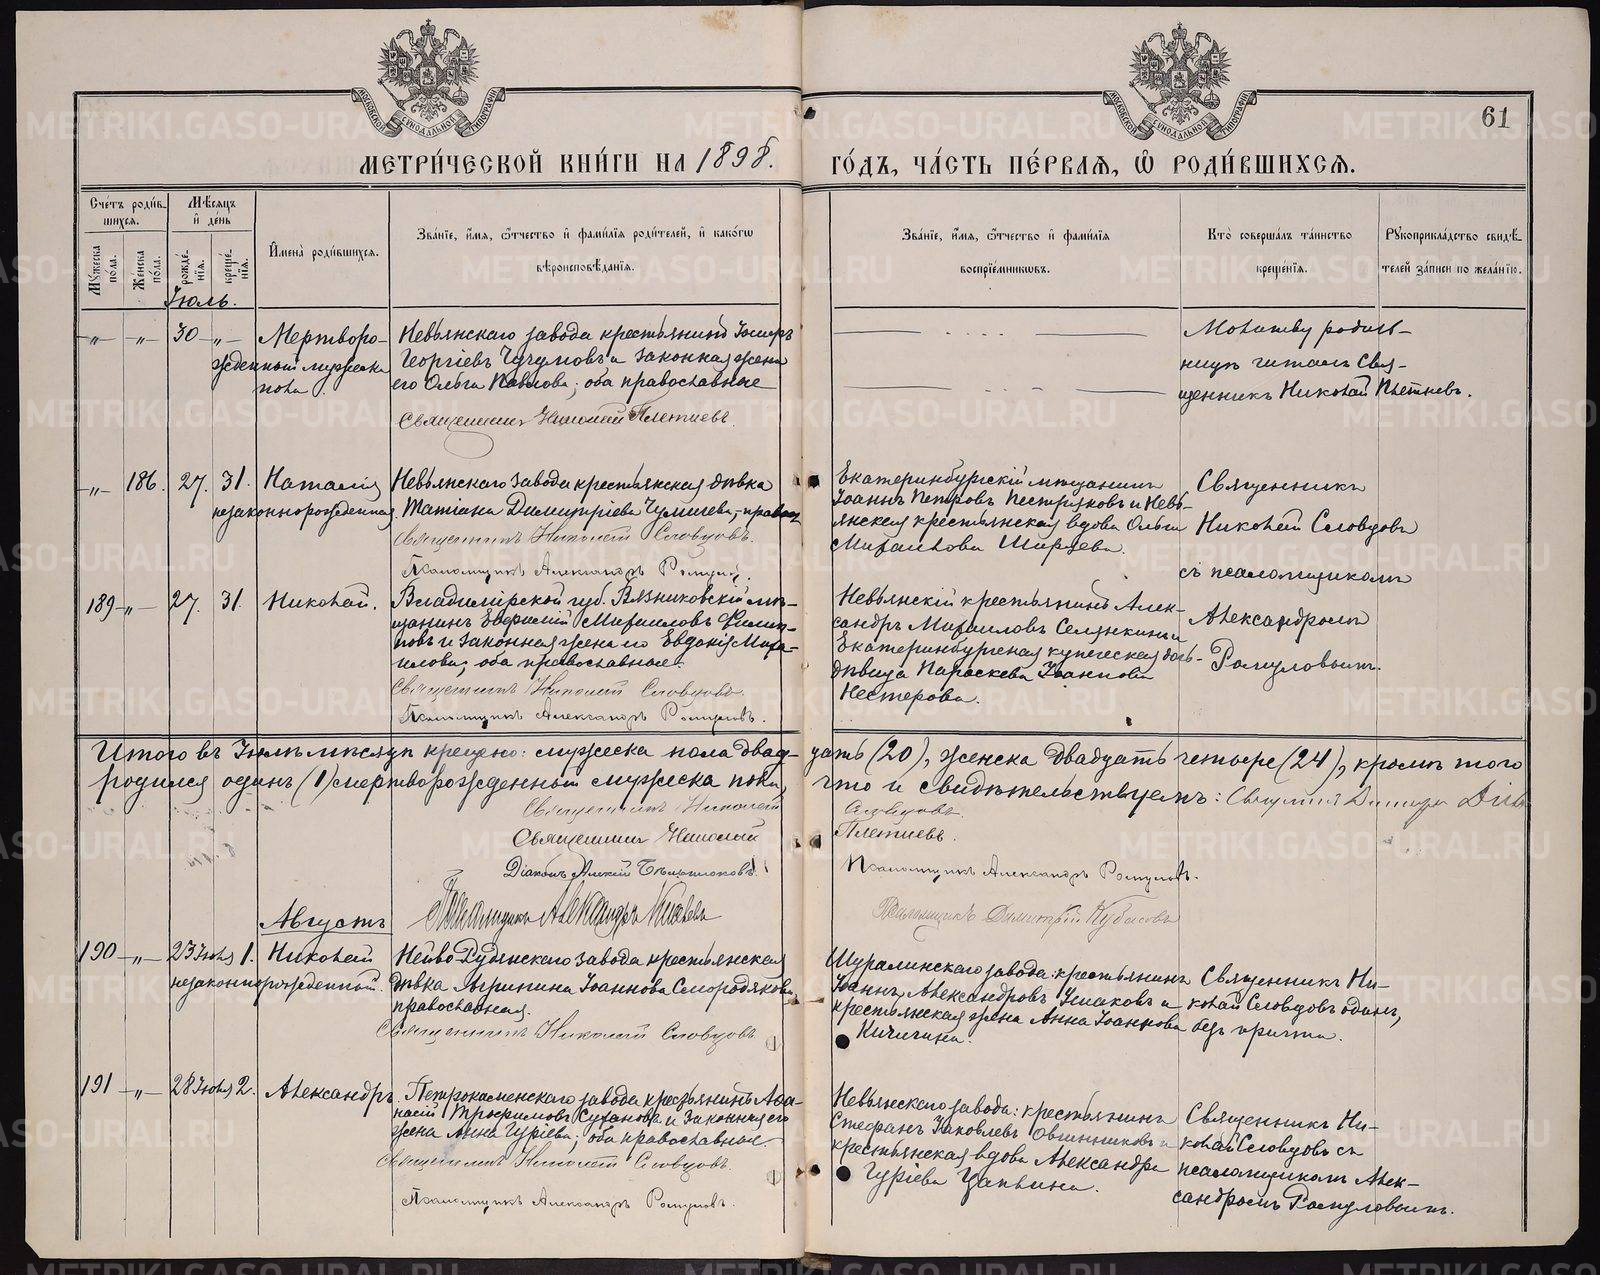 МЕТРИ́ЧЕСКОЙ КНИ́ГИ НА 1898.
ГО́ДЪ, ЧА́СТЬ ПЕ́РВАѦ, Ѡ҆ РОДИ́ВШИХСѦ.
61
Сче́тъ роди́в-
шихся.
Мѣ́сяцъ
и҆ де́нь
Мꙋ́жеска по́ла.
Же́нска по́ла.
рожде́-
нїя.
креще́-
нїя.
И҆мена̀ роди́вшихся.
Зва́нїе, и҆́мя, ѻ҆́тчество и҆ фами́лїя роди́телей, и҆ како́гѡ
вѣроисповѣ́данїя.
Зва́нїе, и҆́мя, ѻ҆́тчество и҆ фами́лїя
воспрїе́мникѡвъ.
Кто̀ соверша́лъ та́инство
креще́нїя.
Рꙋкоприкла́дство свидѣ́-
телей за́писи по жела́нїю.
Іюль.
-„- -„- 30 -„-
Мертворо-
жденный мужеска
пола
Невьянскаго завода крестьянинъ Іосифъ
Георгіевъ и законная жена
его Ольга Павлова; оба православные
Священникъ Николай Плетневъ.
Молитву родиль-
ницѣ читалъ Свя-
щенникъ Николай Плетневъ.
-„- 186. 27. 31.
Наталія
незаконнорожденная
Невьянскаго завода крестьянская дѣвка
Татіана Димитріева, правосл
Священникъ Николай Словцовъ.
Псаломщикъ Александръ Ромуловъ.
Екатеринбургскій мѣщанинъ
Іоаннъ Петровъ Пестряковъ и Невь-
янская крестьянская вдова Ольга
Михаилова Ширяева.
Священникъ
Николай Словцовъ
съ псаломщикомъ
Александромъ
Ромуловымъ.
189 -„- 27. 31.
Николай.
Владимірской губ. Вязниковскій мѣ-
щанинъ Евфимій Михаиловъ Филип-
повъ и законная жена его Евдокія Миха-
илова; оба православные.
Священникъ Николай Словцовъ.
Псаломщикъ Александръ Ромуловъ.
Невьянскій крестьянинъ Алек-
сандръ Михаиловъ Селянкинъ и
Екатеринбургская купеческая дочь-
дѣвица Параскева Іоаннова
Нестерова.
Итого въ Іюлѣ мѣсяцѣ крещено: мужеска пола двад-
цать (20), женска двадцать четыре (24), кромѣ того
родился одинъ (1) мертворожденный мужеска пола,
что и свидѣтельствуемъ:
Священникъ Николай
Словцовъ.
Священникъ Николай
Плетневъ.
Діаконъ Алексій
Псаломщикъ Александръ Ромуловъ.
Псаломщикъ Александръ
Псаломщикъ Димитрій Кубасовъ
Августъ
190 -„- 23 Іюля 1.
Николай
незаконнорожденный.
Нейво-Рудянскаго завода крестьянская
дѣвка Агрипина Іоаннова Смородякова
православная.
Священникъ Николай Словцовъ.
Шуралинскаго завода: крестьянинъ
Іоаннъ Александровъ Ушаковъ и
крестьянская жена Анна Іоаннова
Кичигина.
Священникъ Ни-
колай Словцовъ одинъ,
безъ причта.
191 -„- 28 Іюля 2.
Александръ.
Петрокаменскаго завода крестьянинъ Аѳа-
насій Трофимовъ Сухановъ и законная его
жена Анна Гуріева; оба православные
Священникъ Николай Словцовъ.
Псаломщикъ Александръ Ромуловъ.
Невьянскаго завода: крестьянинъ
Стефанъ Іаковлевъ Овчинниковъ и
крестьянская вдова Александра
Гуріева Цаплина.
Священникъ Ни-
колай Словцовъ съ
псаломщикомъ Алек-
сандромъ Ромуловымъ.
METRIKI.GASO-URAL.RU